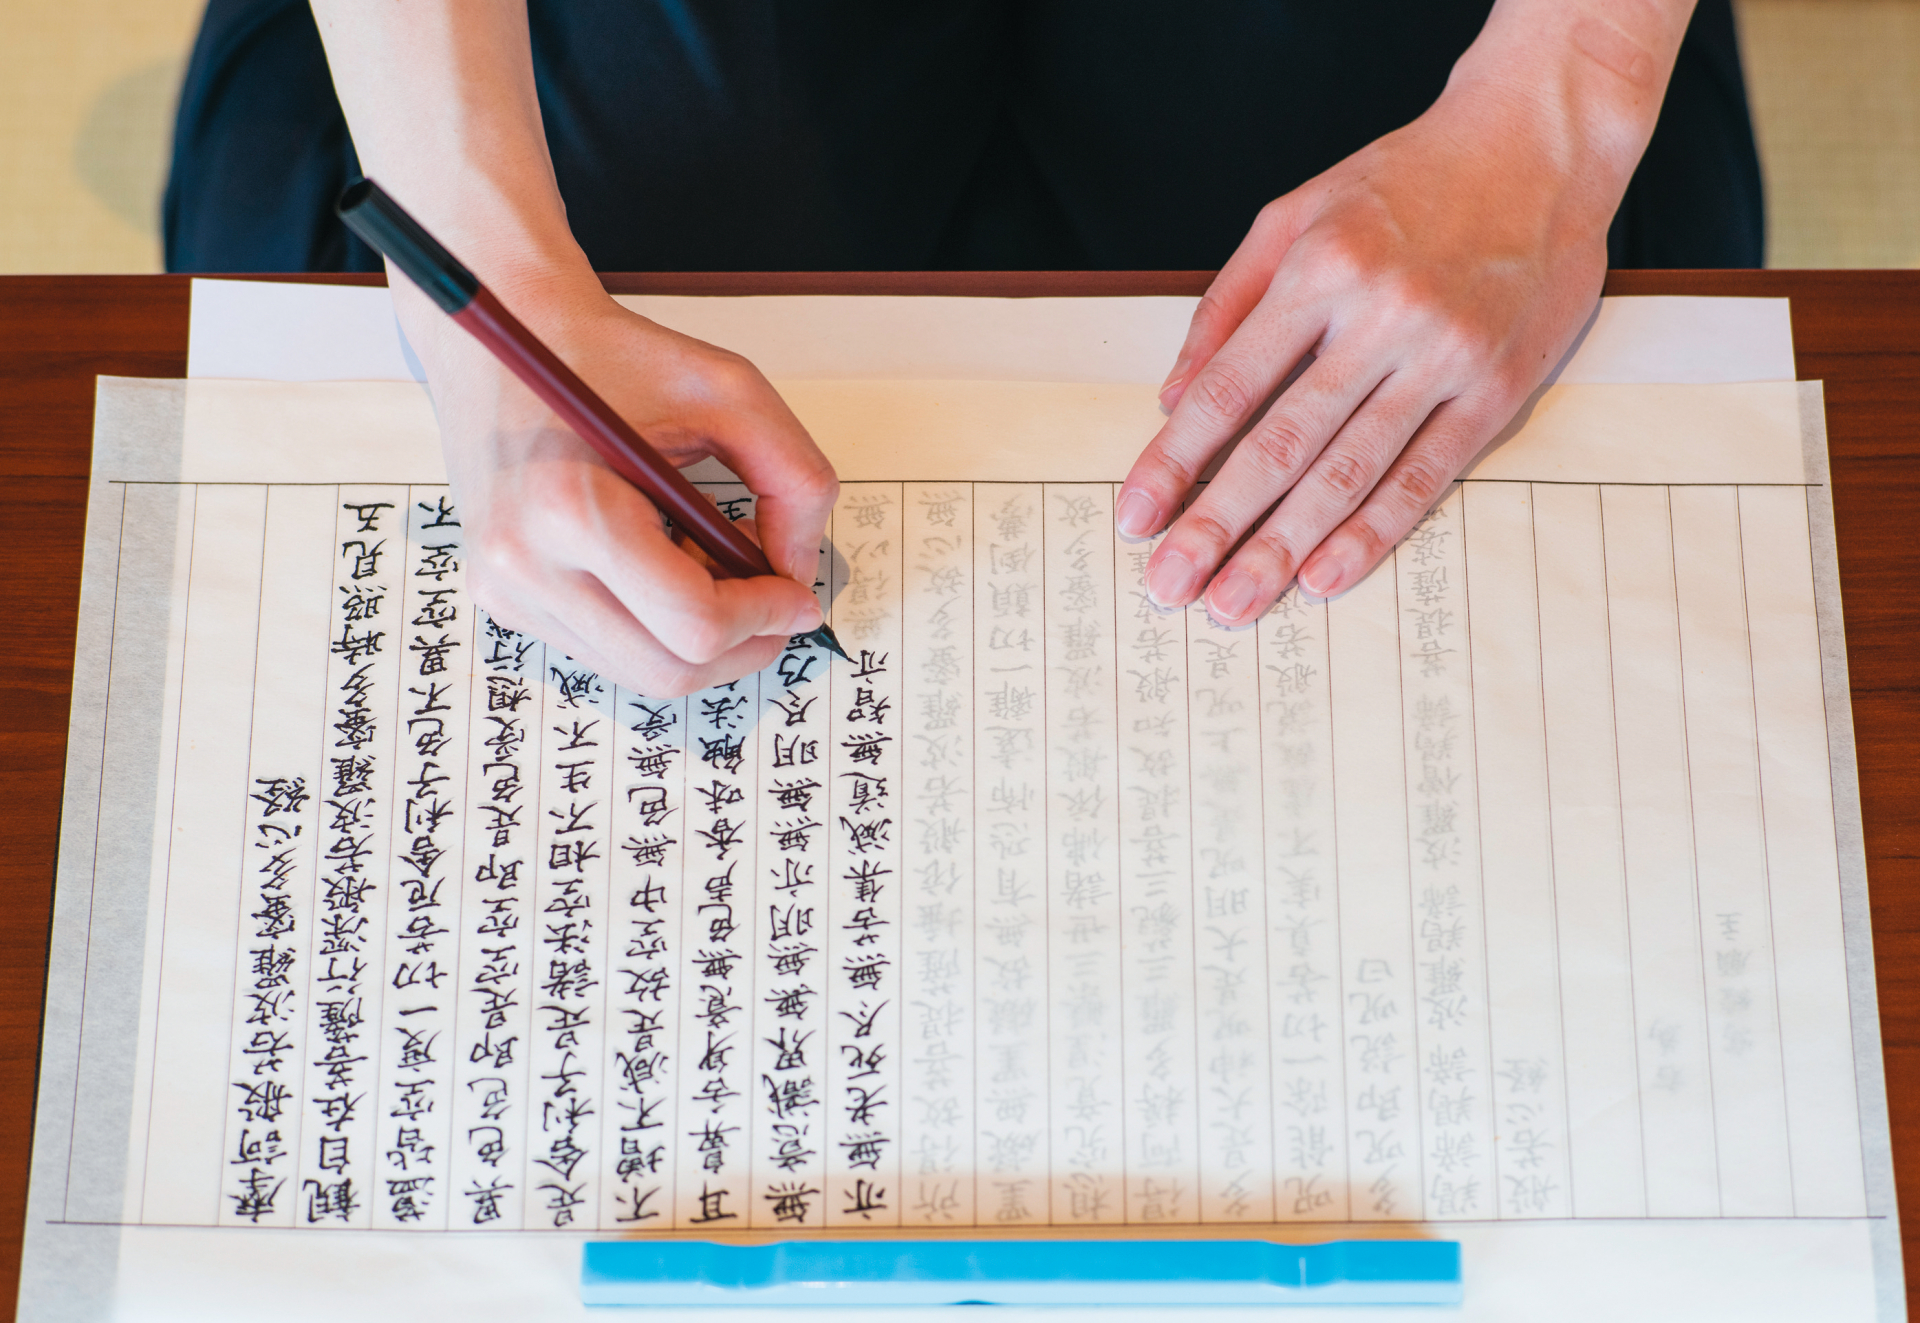 摩訶般若波羅蜜多心経
観自在菩薩行深般若波羅蜜多時照見五
蘊皆空度一切苦厄舎利子色不異空空不
異色色即是空空即是色受想行識
是舎利子是諸法空相不生不滅
不増不減是故空中無色無受
耳鼻舌身意無色声香味触法 至
無意識界無無明亦無無明尽乃至
亦無老死尽無苦集滅道無智亦無得以無
所得故菩提薩埵依般若波羅蜜多故心無
罣礙無罣礙故無有恐怖遠離一切顛倒夢
想究竟涅槃三世諸佛依般若波羅蜜多故
得阿耨多羅三藐三菩提故知般若波羅
多是大神呪是大明呪是無上呪是
呪能除一切苦真実不虚故説般若波
多呪即説呪曰
羯諦羯諦波羅羯諦波羅僧羯諦菩提薩婆
般若心経
右為
写経願主